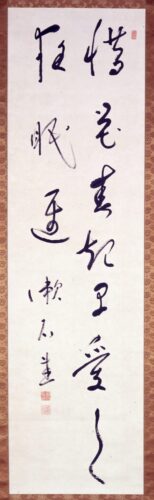 惜花春起早愛月
夜眠遅
漱石生